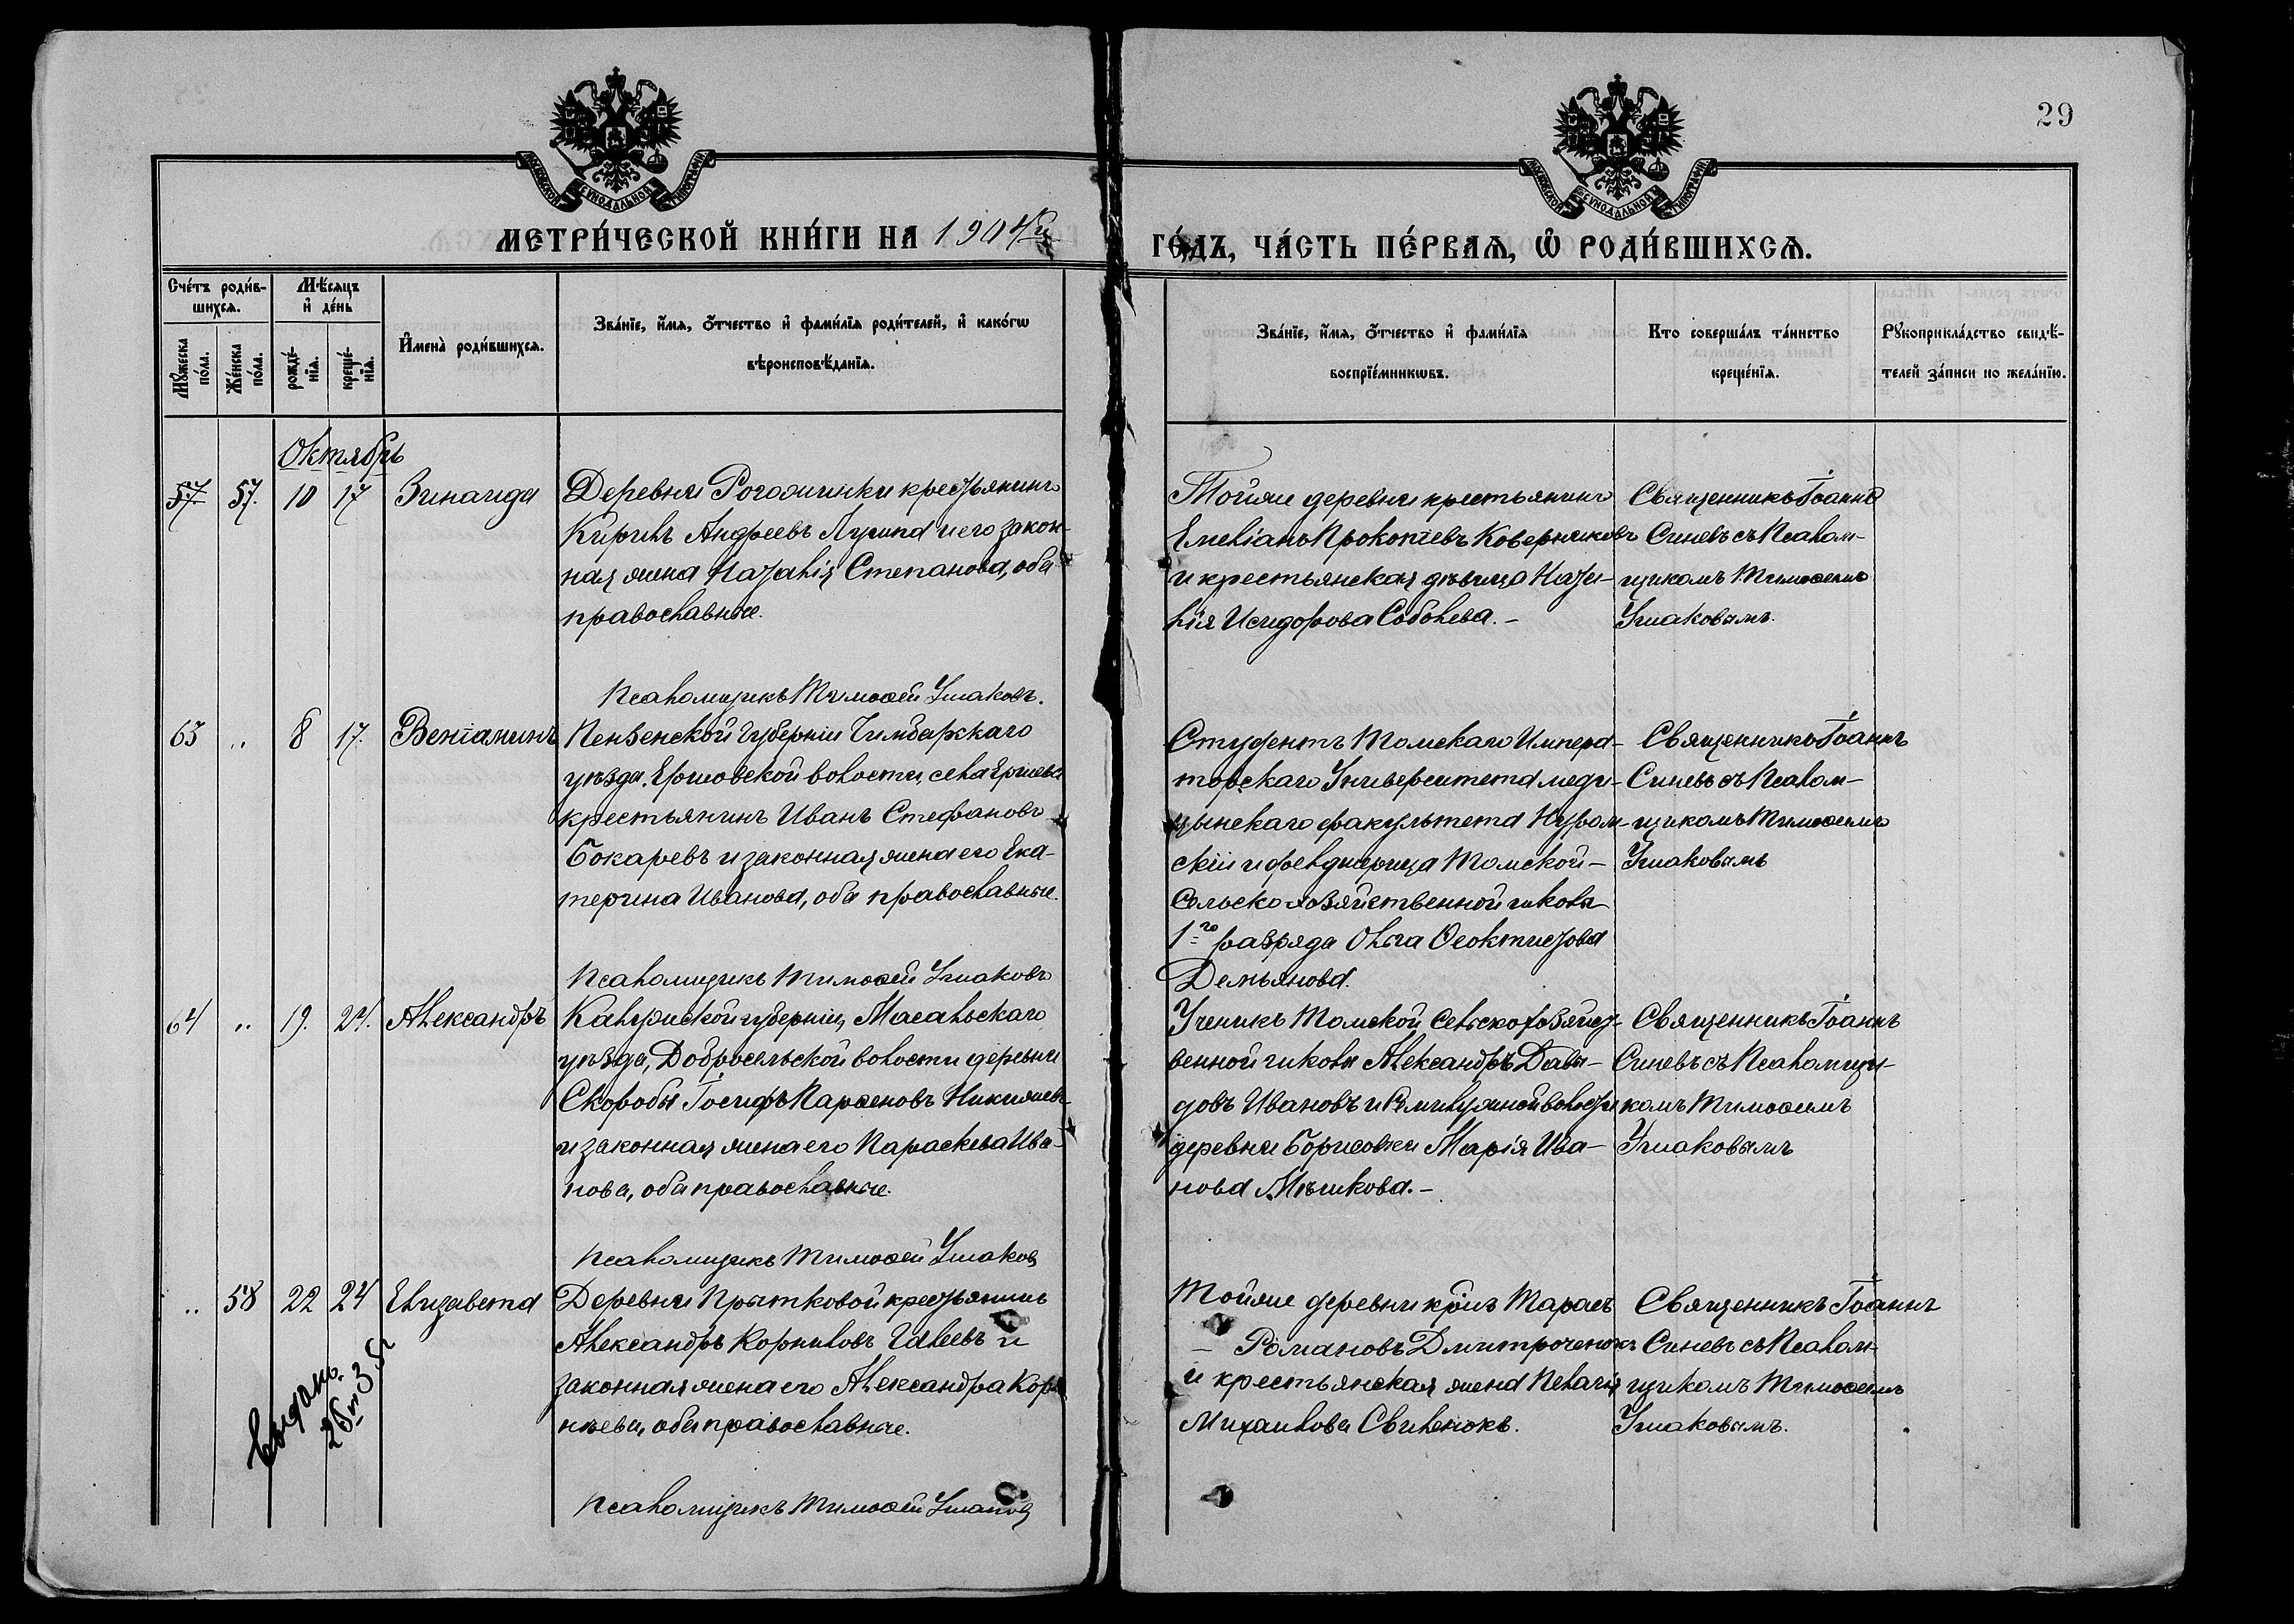 29
МЕТРИ́ЧЕСКОЙ КНИ́ГИ НА 1904й
ГО́ДЪ, ЧА́СТЬ ПЕ́РВАѦ, Ѡ҆ РОДИ́ВШИХСѦ.
Сче́тъ роди́в-
шихсѧ.
Мѣ́сѧцъ
и҆ де́нь
И҆мена̀ роди́вшихсѧ.
Зва́нїе, и҆́мѧ, ѻ҆́тчество и҆ фами́лїѧ роди́телей, и҆ како́гѡ
вѣроисповѣ́данїѧ.
Мꙋ́жеска
по́ла.
Же́нска
по́ла.
рожде́-
нїѧ.
креще́-
нїѧ.
Зва́нїе, и҆́мѧ, ѻ҆́тчество и҆ фами́лїѧ
воспрїе́мникѡвъ.
Кто соверша́лъ та́инство
креще́нїѧ.
Рꙋкоприкла́дство свидѣ́-
телей за́писи по жела́нїю.
Октябрь
57 57. 10 17 Зинаида
Деревни Рогожинки крестьянинъ
Кирилъ Андреевъ Лузина и его закон-
ная жена Наталія Степанова, оба
православные.
Псаломщикъ Тимоѳей Ушаковъ.
Тойже деревни крестьянинъ
Емеліанъ Прокопіевъ Коверниковъ
и крестьянская дѣвица Ната-
лія Исидорова Соболева. –
Священникъ Іоаннъ
Синевъ съ Псалом-
щикомъ Тимоѳеемъ
Ушаковымъ.
63 „ 8 17. Веніаминъ
Пензенской губерніи Чембарскаго
уѣзда, Ершовской волости, села Ершева
крестьянинъ Иванъ Стефановъ
Бокаревъ и законная жена его Ека-
терина Иванова, оба православные.
Псаломщикъ Тимоѳей Ушаковъ
Студентъ Томскаго Импера-
торскаго Университета меди-
цынскаго факультета
скій и фельдшерица Томской –
Сельскохозяйственной школы
1-го разряда Ольга Ѳеоктистова
Демьянова.
Священникъ Іоаннъ
Синевъ съ Псалом-
щикомъ Тимоѳеемъ
Ушаковымъ
64 „ 19. 24. Александръ
Калужской губерніи, Масальскаго
уѣзда, Добросельской волости деревни
Скоробы Іосифъ Парѳеновъ
и законная жена его Параскева Ива-
нова, оба православные.
Псаломщикъ Тимоѳей Ушаковъ
Ученикъ Томской Сельскохозяйст-
венной школы Александръ Давы-
довъ Ивановъ и Семилужной волости
деревни Борисовки Марія Ива-
нова Мѣшкова. –
Священникъ Іоаннъ
Синевъ съ Псаломщи-
комъ Тимоѳеемъ
Ушаковымъ
„ 58 22 24 Елизавета
Выданъ.
Деревни Прытковой крестьянинъ
Александръ Корниловъ Галеевъ и
законная жена его Александра Кор-
нѣева, оба православные.
Псаломщикъ Тимоѳей Ушаковъ
Тойже деревни кр-нъ Тарасъ
– Романовъ Дмитроченокъ
и крестьянская жена Пелагія
Михаилова Свиленокъ.
Священникъ Іоаннъ
Синевъ съ Псалом-
щикомъ Тимоѳеемъ
Ушаковымъ.